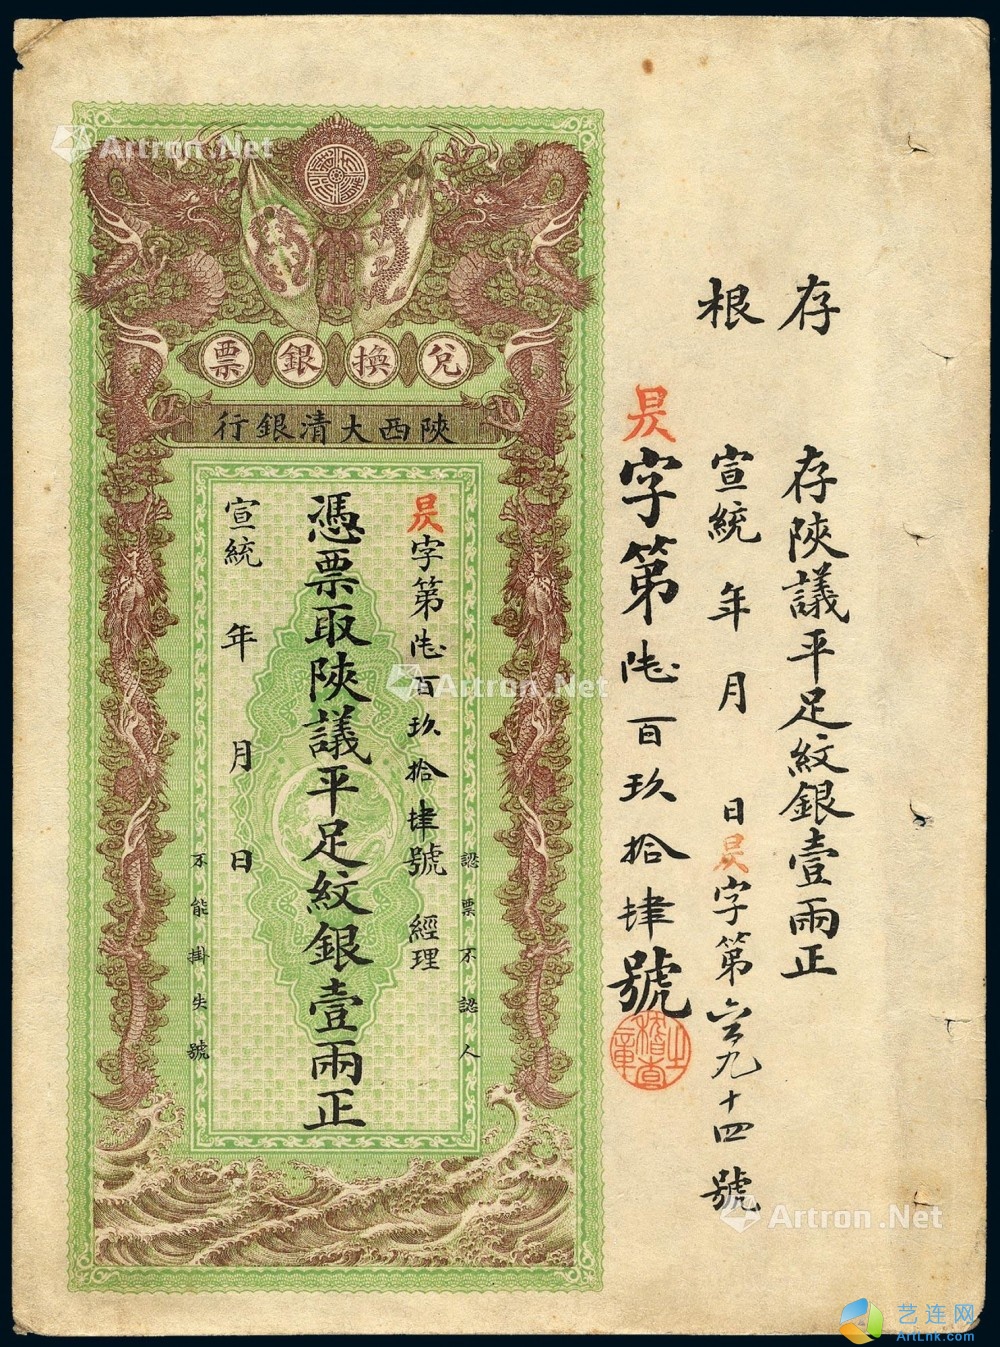 存根
存陝議平足紋銀壹兩正
宣統 年 月 日昃字第六百九十四號
昃字第陸百玖拾肆號
稽查之章
兌換銀票
陝西大清銀行
認票不認人
昃字第陸百玖拾肆號 經理
憑票取陝議平足紋銀壹兩正
宣統 年 月 日
不能掛失號
Artron.Net
Artron.Net
Artron.Net
艺连网
ArtLnk.com